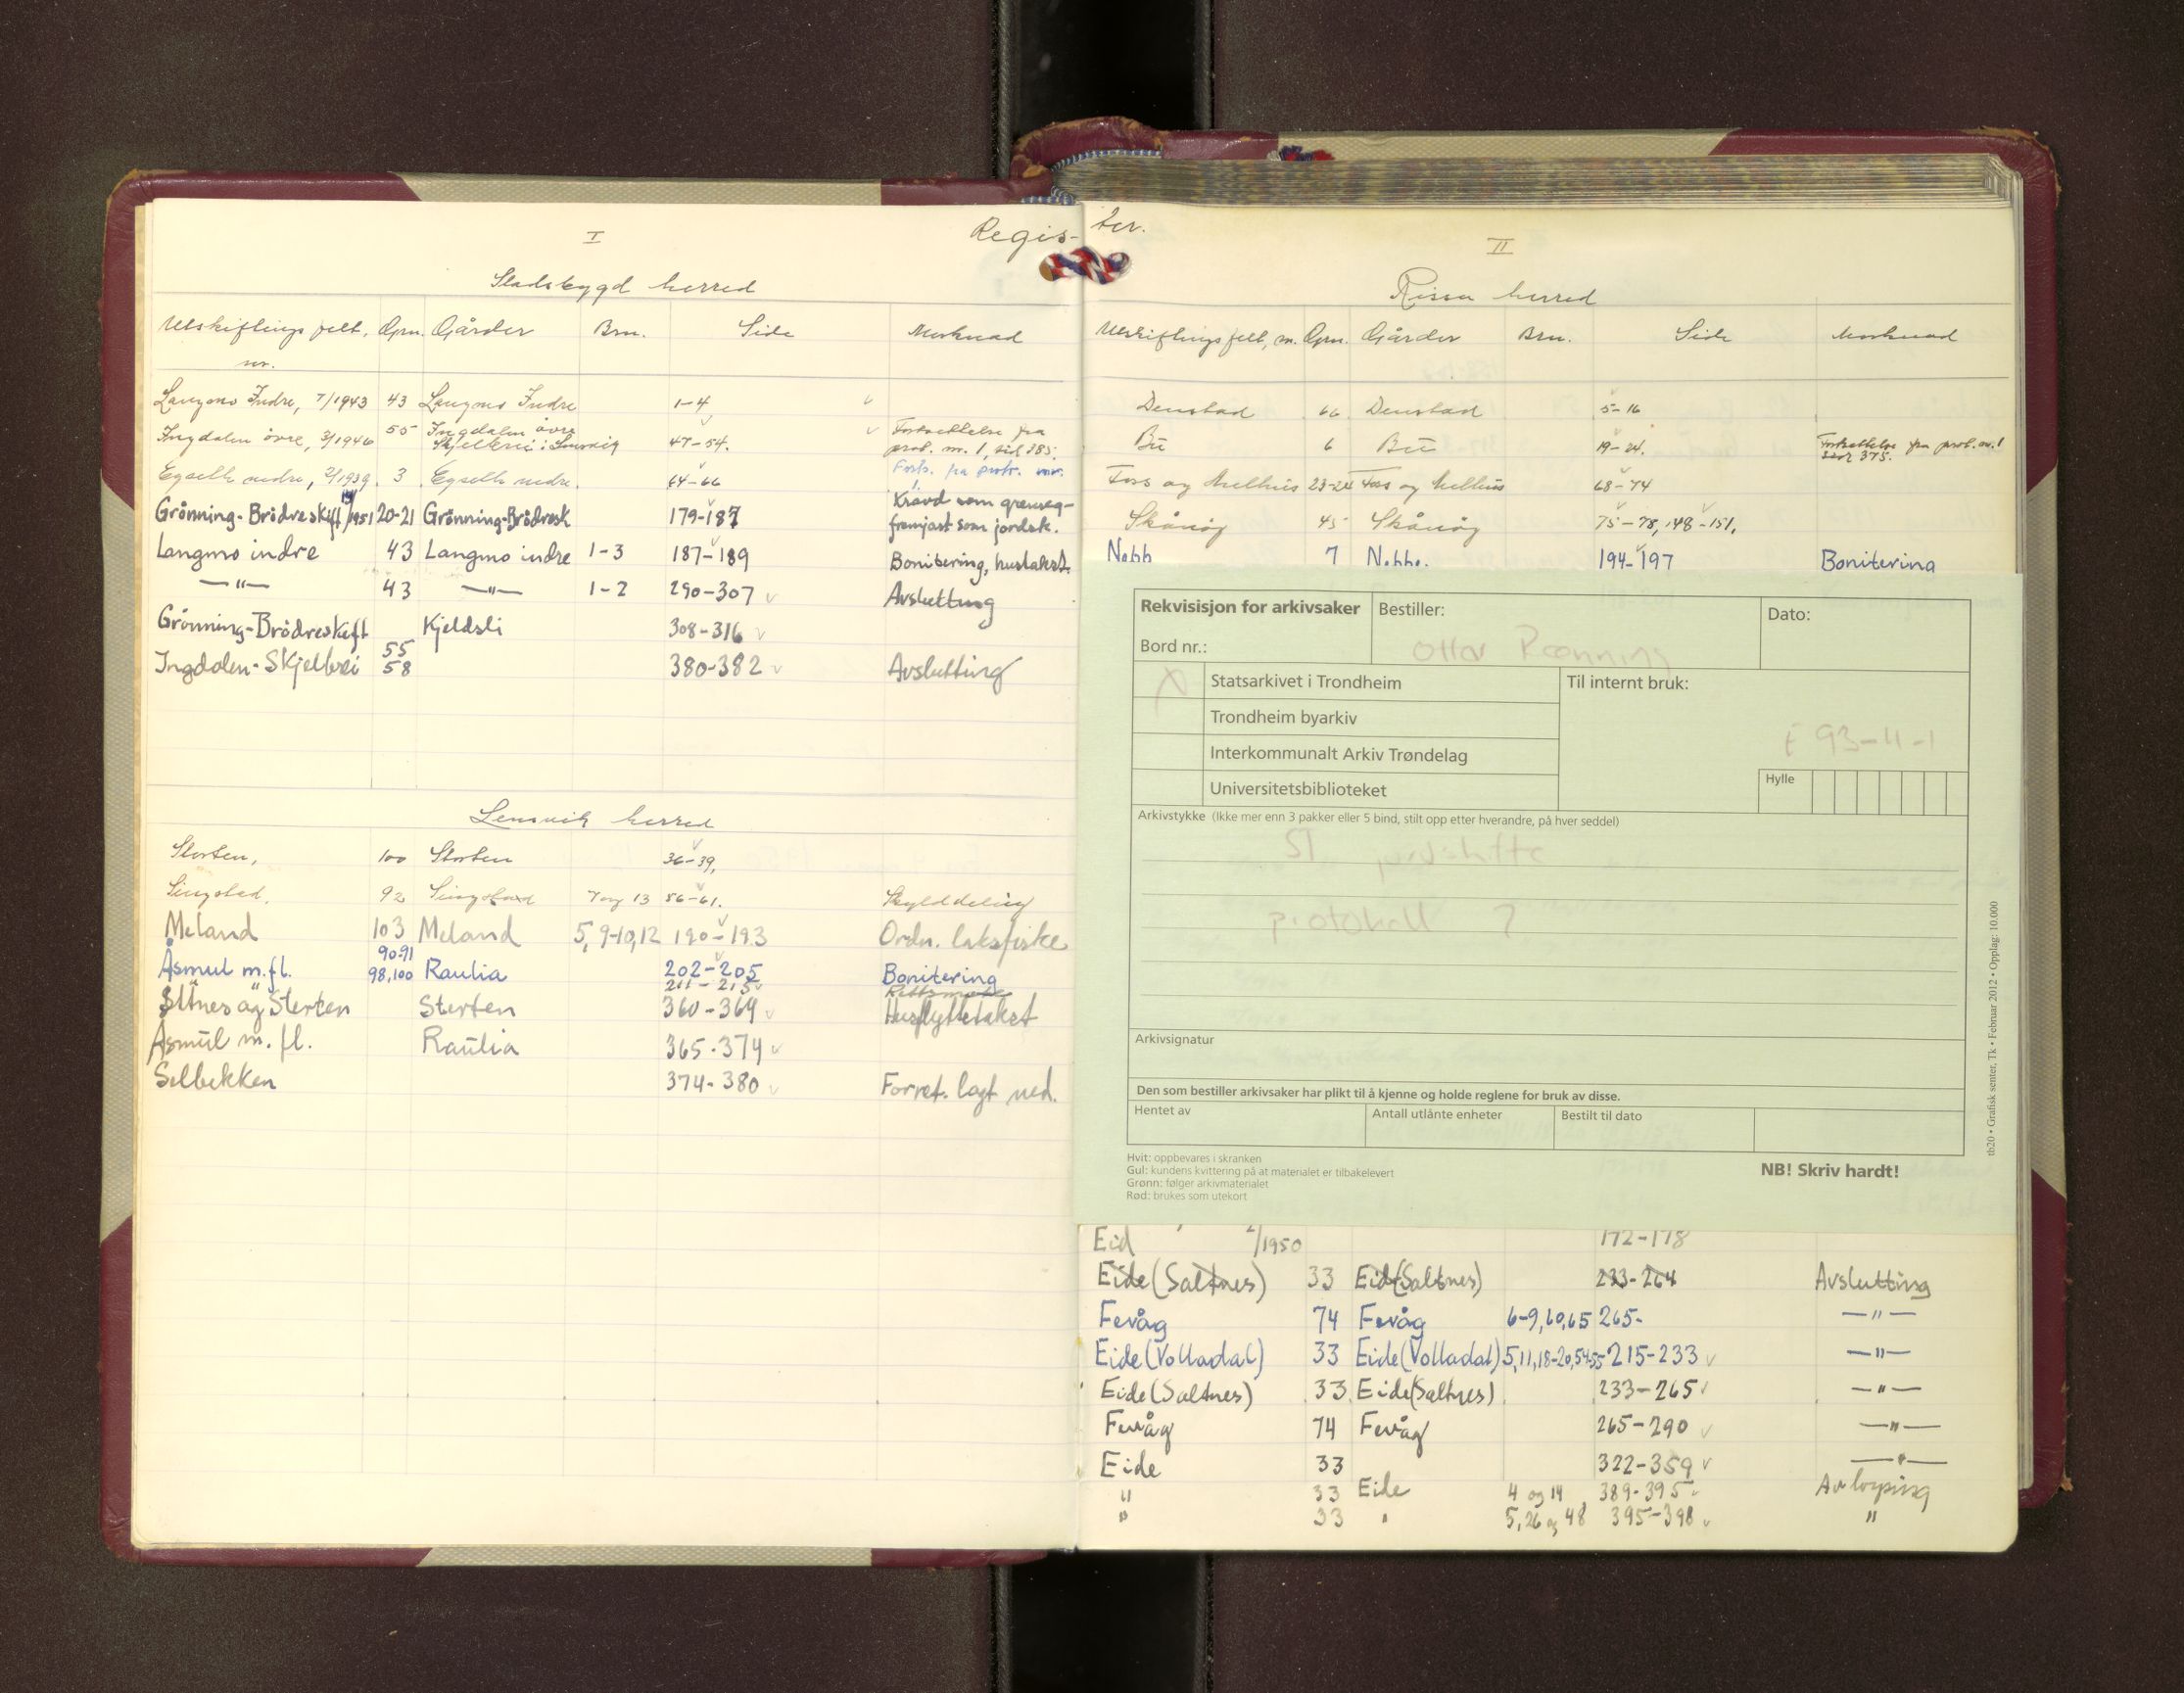 Regis-ter.
I
Stadsbygd herred
Utskiftings felt, nr. Gnr. Gårder Brn. Side Merknad
Langmo Indre, 7/1943 43 Langmo Indre 1-4
Ingdalen övre, 3/1946 55 Ingdalen övre Skjelbrei i Lensvig 47-54. Fortsettelse fra prot. nr. 1, sid 385.
nedre, 2/1939 3 nedre. 64-66 Forts. fra protr. nr. 1.
Grönning-Brödreskift 14/1951 20-21 Grönning-Brödresk 179-187 Kravd som grenseg- fremjast som jordsk.
Langmo indre 43 Langmo indre 1-3 187-189 Bonitering, hustakst.
—"— 43 —"— 1-2 290-307 Avslutting
Grönning-Brödreskift Kjeldsli 308-316
Ingdalen-Skjelbrei 55 58 380-382 Avslutting
Lensvik herred
Sterten, 100 Sterten 36-39,
Singstad. 92 Singstad 7 og 13 56-61. Skylddeling
Meland 103 Meland 5, 9-10, 12 190-193 Ordn. laksfiske
Åsmul m.fl. 90-91 98,100 Raulia 202-205 Bonitering
211-215 Rettsmøte
Selnes og Sterten Sterten 360-364 Husflyttetakst
Åsmul m. fl. Raulia 365-374
Selbekken 374-380 Forret. lagt ned.
II
Rissa herred
Utskiftingsfelt, nr. Gnr. Gårder Brn. Side Merknad
Denstad 66 Denstad 5-16
Bü 6 Bü 19-24. Fortsettelse fra prot. nr. 1 side 375.
Foss og Melhus 23-24 Foss og Melhus 68-74
Skånöy 45 Skånöy 75-78, 148-151.
Nebb 7 Nebbe. 194-197 Bonitering
Rekvisisjon for arkivsaker Bestiller: Dato:
Bord nr.: Ottar Rønning
X Statsarkivet i Trondheim Til internt bruk:
Trondheim byarkiv
Interkommunalt Arkiv Trøndelag
Universitetsbiblioteket Hylle
Arkivstykke (Ikke mer enn 3 pakker eller 5 bind, stilt opp etter hverandre, på hver seddel)
jordskifte
protokoll 7
Arkivsignatur
Den som bestiller arkivsaker har plikt til å kjenne og holde reglene for bruk av disse.
Hentet av Antall utlånte enheter Bestilt til dato
Hvit: oppbevares i skranken
Gul: kundens kvittering på at materialet er tilbakelevert
Grønn: følger arkivmaterialet
Rød: brukes som utekort
NB! Skriv hardt!
tb20 • Grafisk senter, Tk • Februar 2012 • Opplag: 10.000
Eid 2/1950 172-178
Eide (Saltnes) 33 Eide (Saltnes) 233-264 Avslutting
Fevåg 74 Fevåg 6-9, 60, 65 265- —"—
Eide (Volladal) 33 Eide (Volladal) 5, 11, 18-20, 54-55 215-233 —"—
Eide (Saltnes) 33 Eide (Saltnes) 233-265 —"—
Fevåg 74 Fevåg 265-290 —"—
Eide 33 322-359 —"—
" 33 Eide 4 og 14 389-395 Avløysing
" 33 " 5, 26 og 48 395-398 "